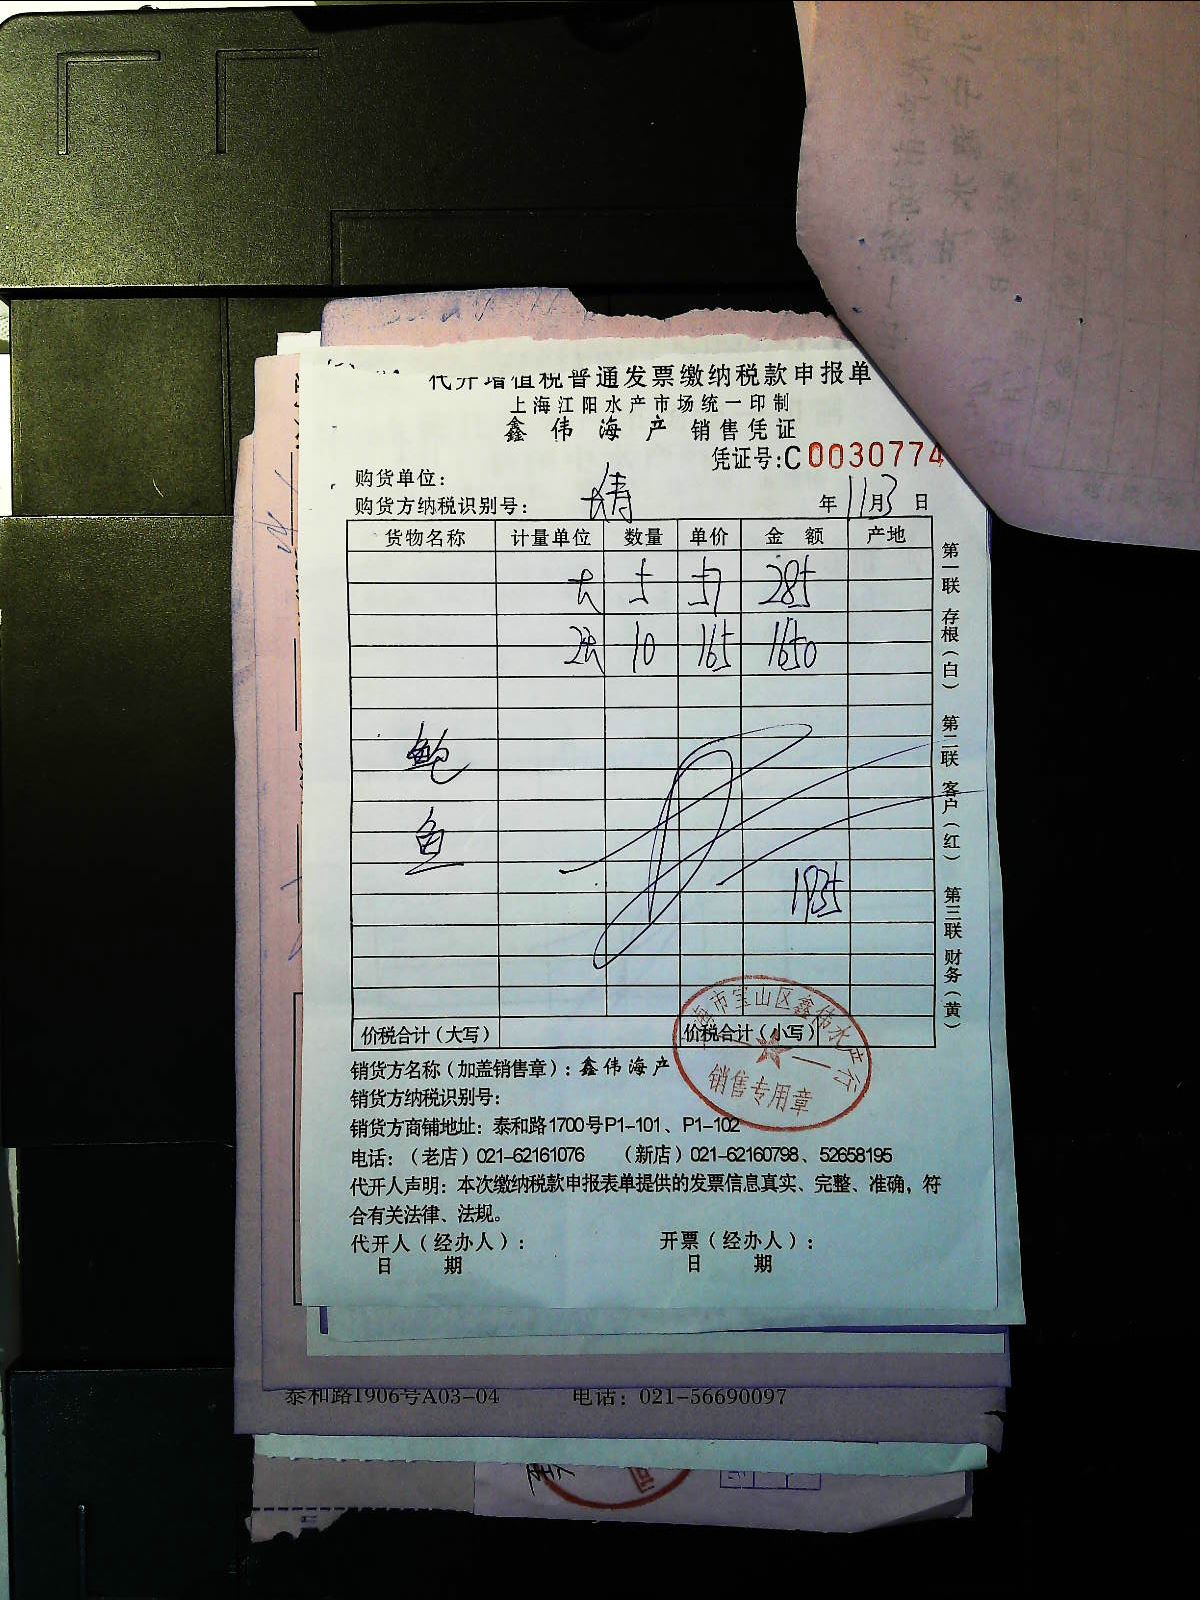 代开增值税普通发票缴纳税款申报单
上海江阳水产市场统一印制
鑫伟海产 销售凭证
凭证号:C 0030774
购货单位:
购货方纳税识别号: 年 11月3日
货物名称 计量单位 数量 单价 金额 产地
大 5 57 285
10 165 1650
鲍
鱼
1935
价税合计(大写) 价税合计(小写)
第一联 存根(白) 第二联 客户(红) 第三联 财务(黄)
上海市宝山区鑫伟水产行
销售专用章
销货方名称(加盖销售章):鑫伟海产
销货方纳税识别号:
销货方商铺地址:泰和路1700号P1-101、P1-102
电话:(老店)021-62161076 (新店)021-62160798、52658195
代开人声明:本次缴纳税款申报表单提供的发票信息真实、完整、准确,符
合有关法律、法规。
代开人(经办人): 开票(经办人):
日 期 日 期
泰和路1906号A03-04 电话:021-56690097